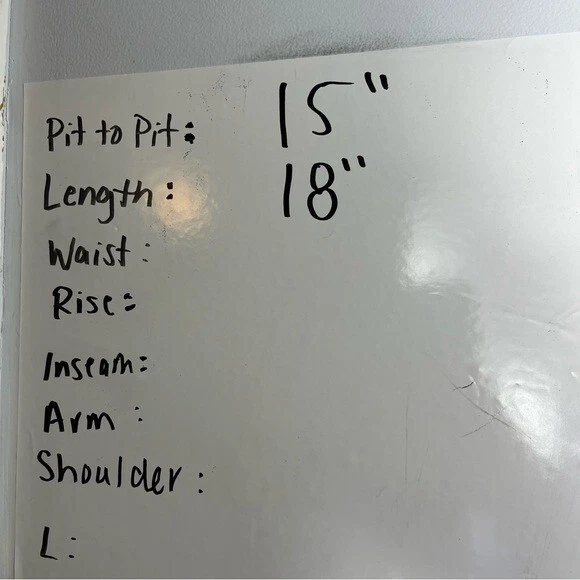 Pit to Pit: 15"
Length: 18"
Waist:
Rise:
Inseam:
Arm:
Shoulder:
L: